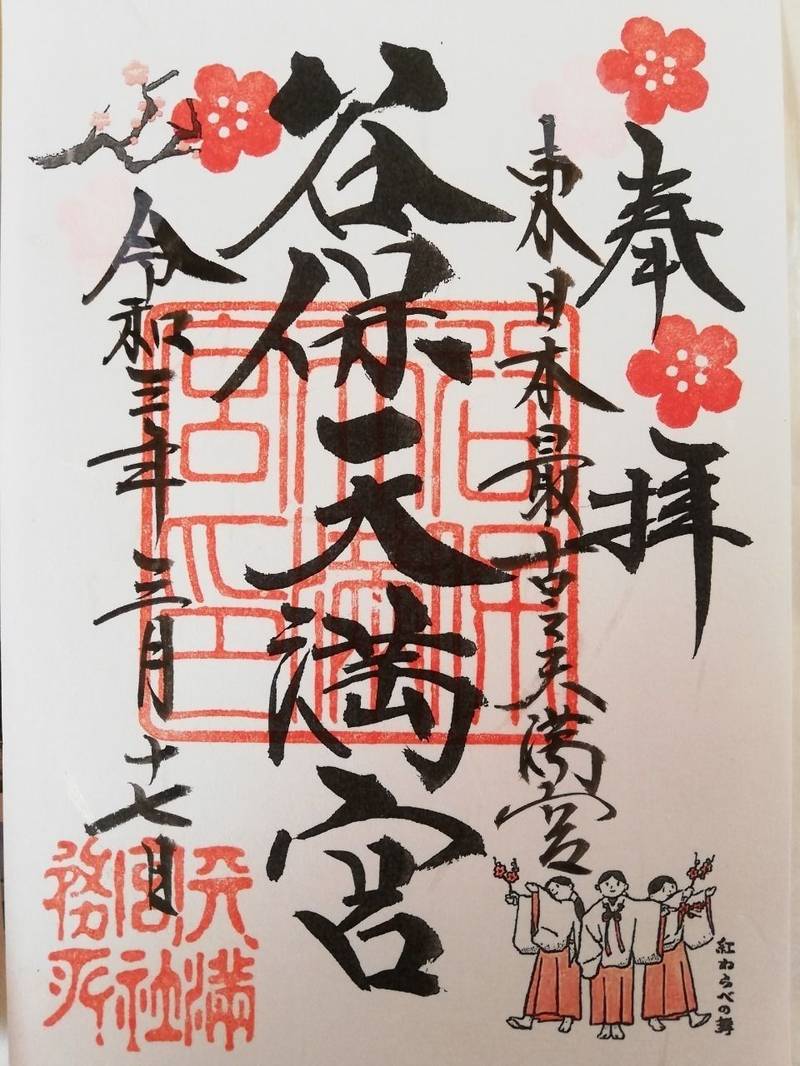 奉拝
東日本最古天満宮
谷保天満宮
令和三年三月十七日
谷保天満宮印
天満宮社務所
紅わらべの舞